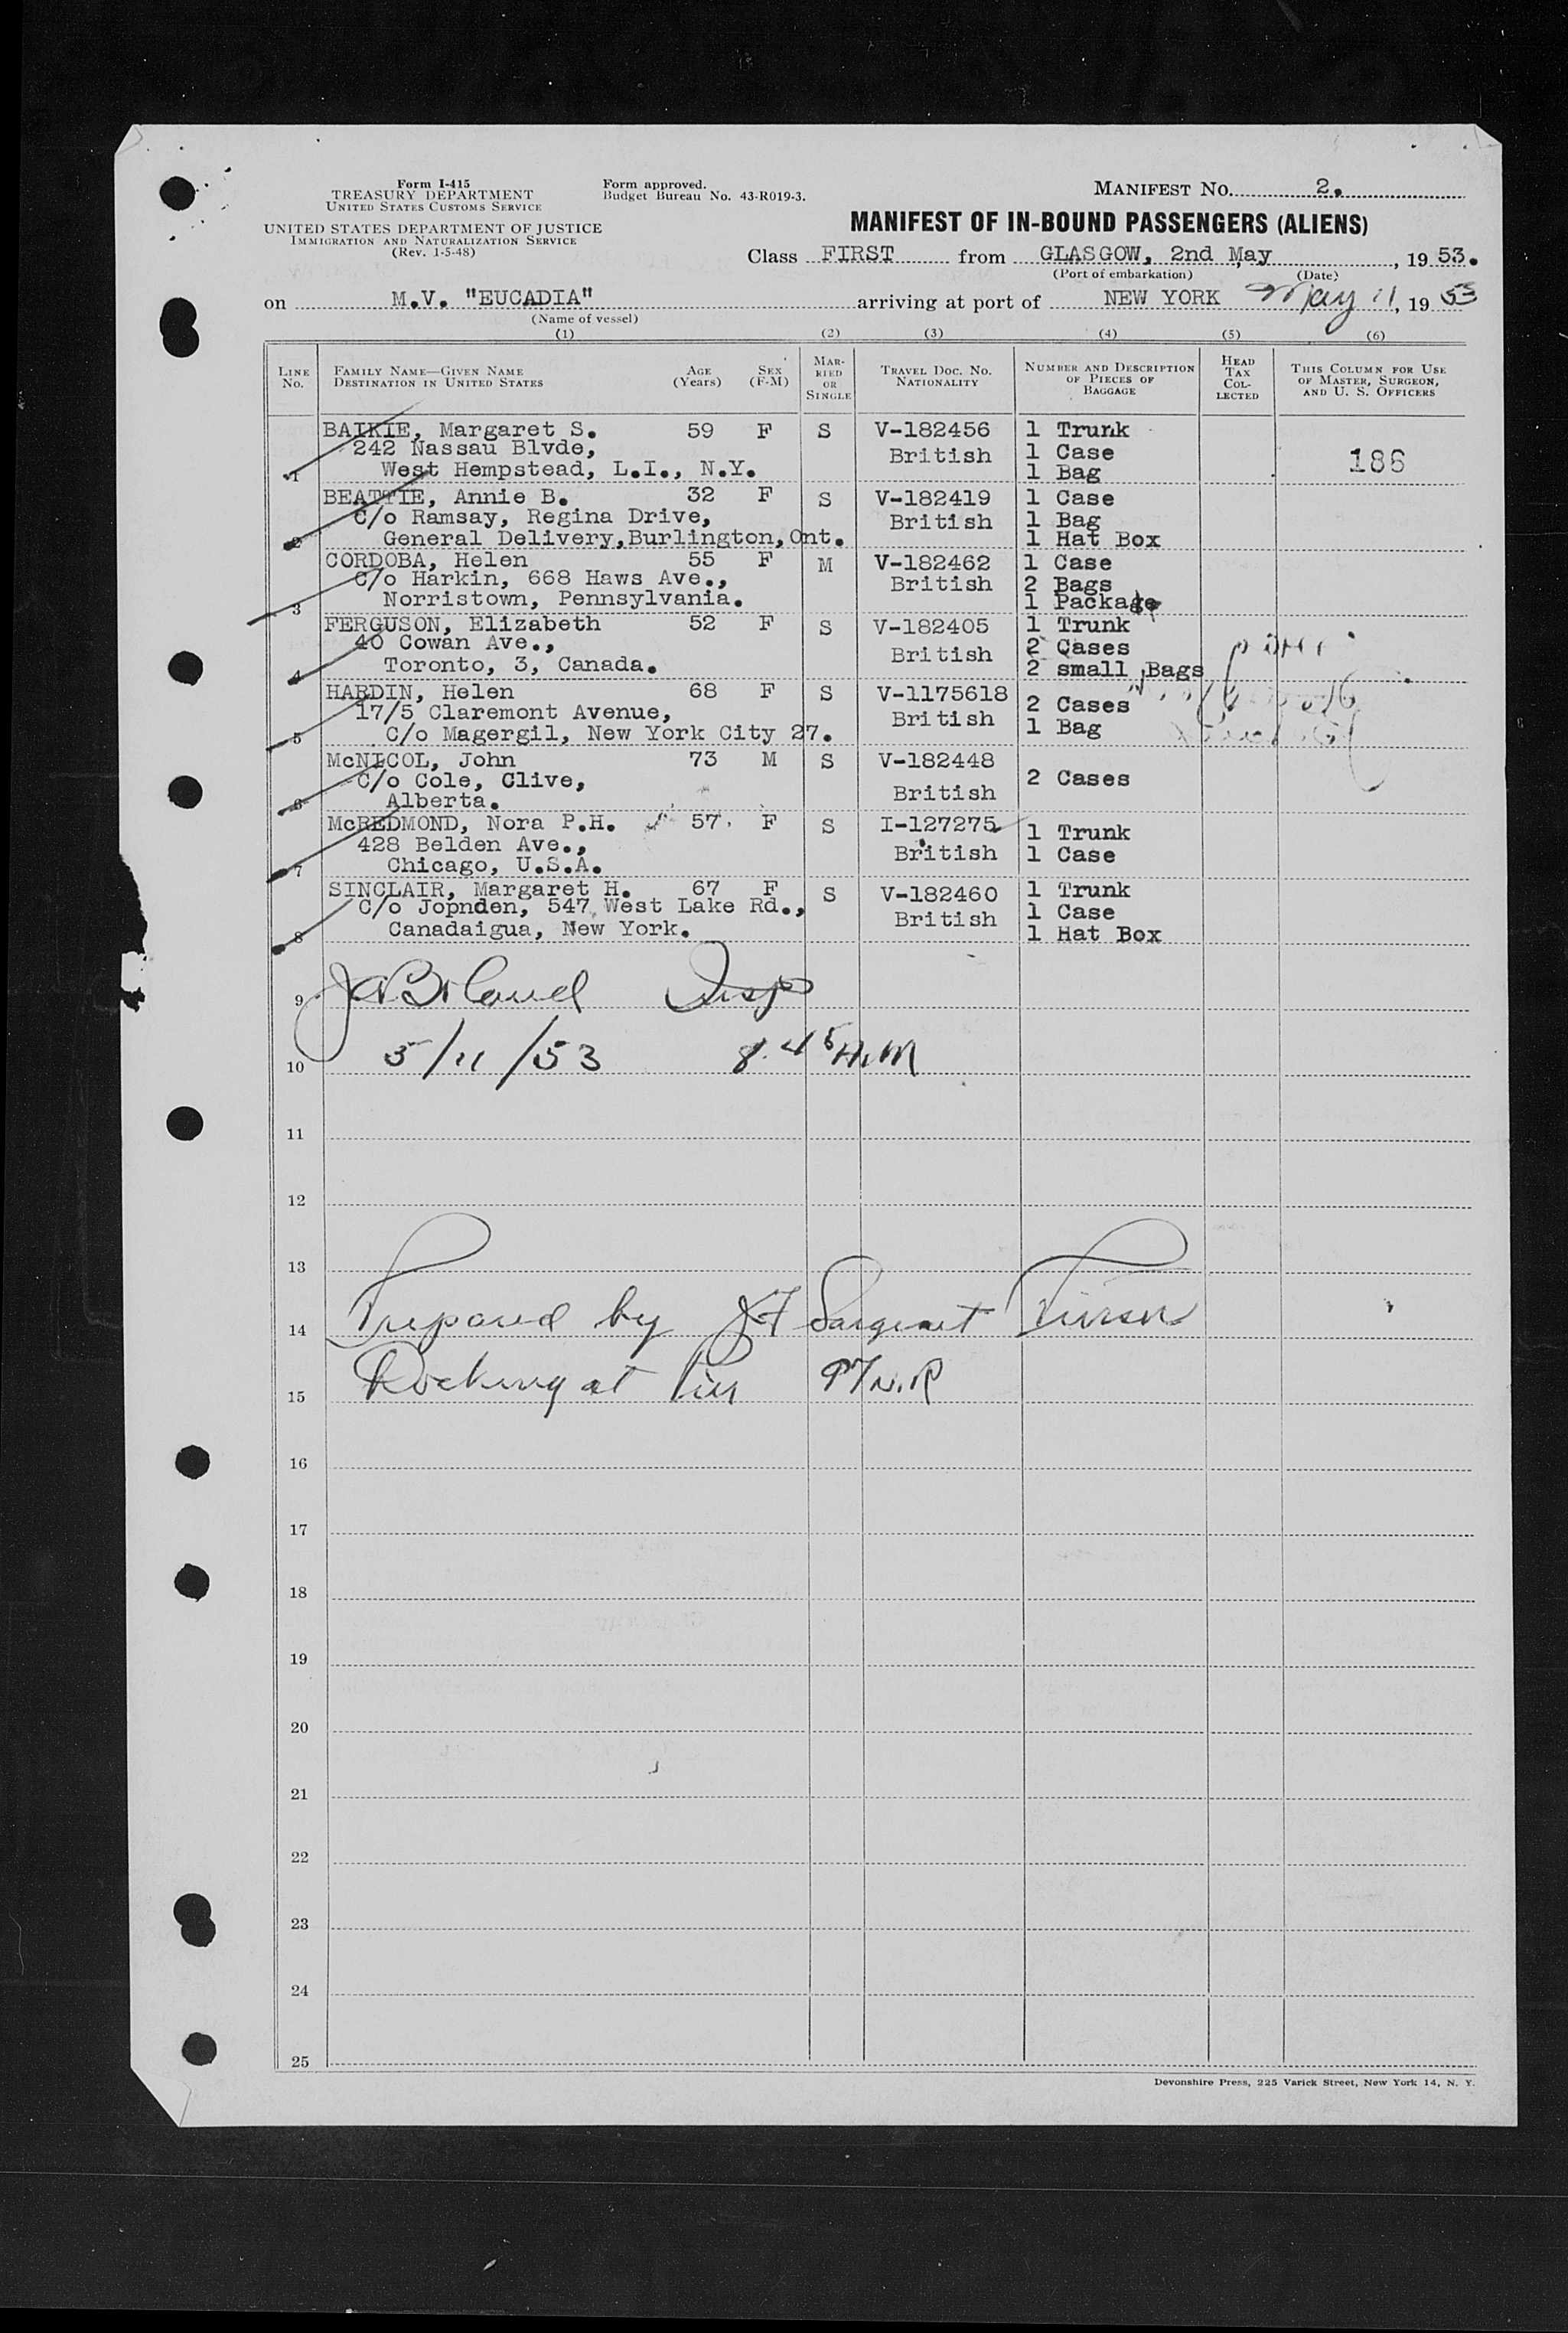 Form I-415
TREASURY DEPARTMENT
UNITED STATES CUSTOMS SERVICE
UNITED STATES DEPARTMENT OF JUSTICE
IMMIGRATION AND NATURALIZATION SERVICE
(Rev. 1-5-48)
Form approved.
Budget Bureau No. 43-R019-3.
MANIFEST NO. 2.
MANIFEST OF IN-BOUND PASSENGERS (ALIENS)
Class FIRST from GLASGOW, 2nd May, 1953.
(Port of embarkation) (Date)
on M.V. "EUCADIA" arriving at port of NEW YORK May 11, 1953
(Name of vessel)
(1) (2) (3) (4) (5) (6)
LINE No. FAMILY NAME—GIVEN NAME DESTINATION IN UNITED STATES AGE (Years) SEX (F-M) MARRIED OR SINGLE TRAVEL DOC. NO. NATIONALITY NUMBER AND DESCRIPTION OF PIECES OF BAGGAGE HEAD TAX COLLECTED THIS COLUMN FOR USE OF MASTER, SURGEON, AND U. S. OFFICERS
BAIKIE, Margaret S. 59 F S V-182456 1 Trunk
242 Nassau Blvde, British 1 Case 186
1 West Hempstead, L.I., N.Y. 1 Bag
BEATTIE, Annie B. 32 F S V-182419 1 Case
C/o Ramsay, Regina Drive, British 1 Bag
2 General Delivery, Burlington, Ont. 1 Hat Box
CORDOBA, Helen 55 F M V-182462 1 Case
C/o Harkin, 668 Haws Ave., British 2 Bags
3 Norristown, Pennsylvania. 1 Package
FERGUSON, Elizabeth 52 F S V-182405 1 Trunk
40 Cowan Ave., British 2 Cases
4 Toronto, 3, Canada. 2 small Bags
HARDIN, Helen 68 F S V-1175618 2 Cases
17/5 Claremont Avenue, British 1 Bag
5 C/o Magergil, New York City 27.
McNICOL, John 73 M S V-182448 2 Cases
C/o Cole, Clive, British
6 Alberta.
McREDMOND, Nora P.H. 57 F S I-127275 1 Trunk
428 Belden Ave., British 1 Case
7 Chicago, U.S.A.
SINCLAIR, Margaret H. 67 F S V-182460 1 Trunk
C/o Jopnden, 547 West Lake Rd., British 1 Case
8 Canadaigua, New York. 1 Hat Box
9 Insp
10 5/11/53 8.45 A.M
11
12
13
14 Prepared by JF Sargent Purser
15 Docking at Pier 97 N.R
16
17
18
19
20
21
22
23
24
25
Devonshire Press, 225 Varick Street, New York 14, N. Y.